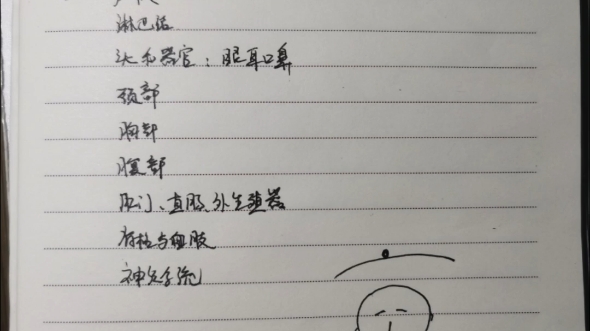 淋巴结
头和器官：眼耳口鼻
颈部
胸部
腹部
肛门、直肠、外生殖器
脊柱与四肢
神经系统